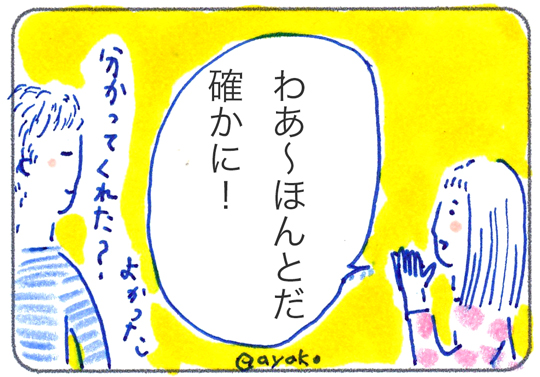 わあ～ほんとだ
確かに！
分かってくれた？
よかった。
@ayako